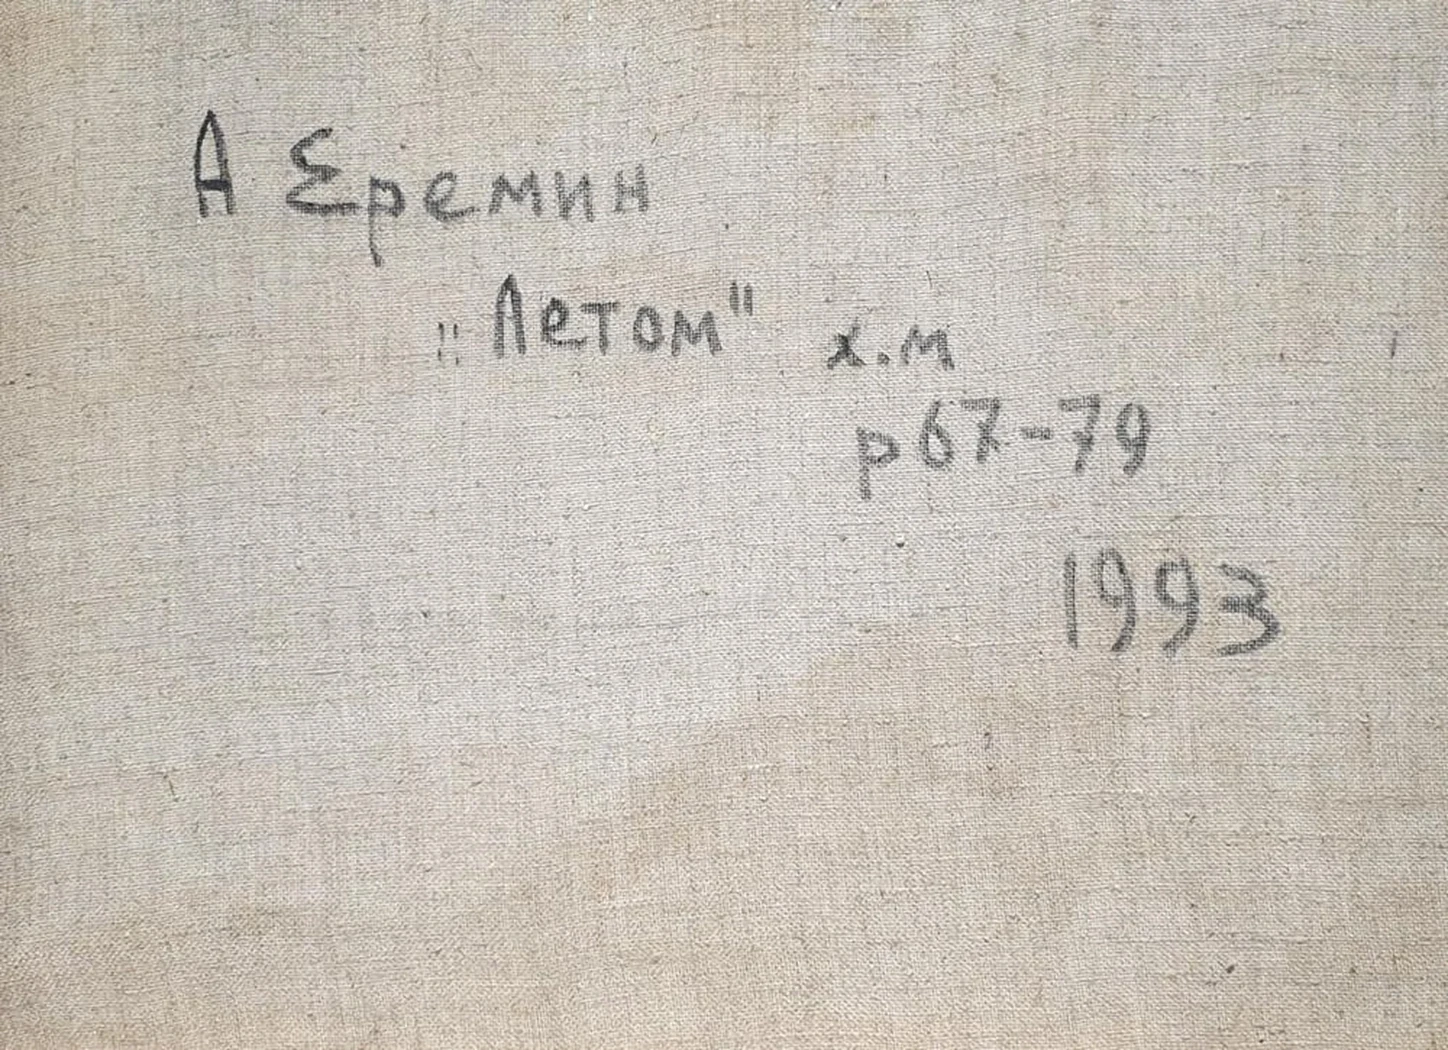 А Еремин
„Летом" х.м
р 67-79
1993